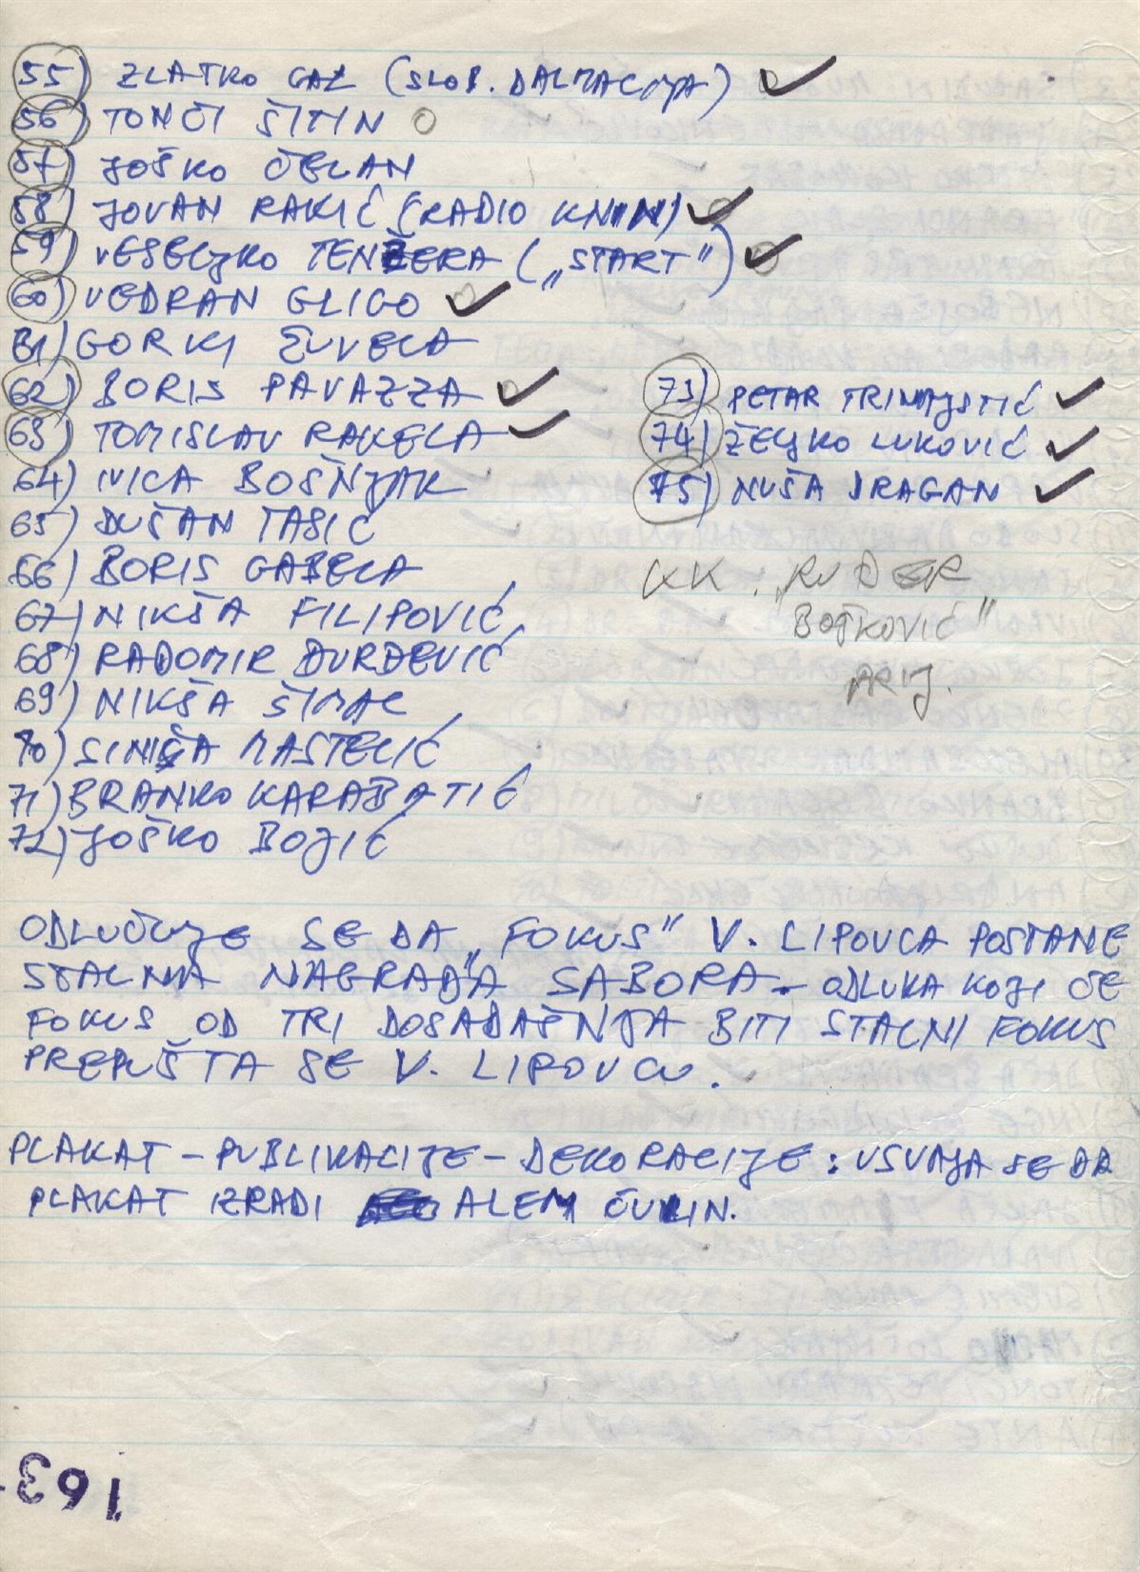 55) ZLATKO GALL (SLOB. DALMACIJA) ✓
56) TONČI ŠITIN O
57) JOŠKO ČELAN
58) JOVAN RAKIĆ (RADIO KNIN) ✓
59) VESELJKO TENŽERA („START") ✓
60) VEDRAN GLIGO ✓
61) GORKI ŽUVELA
62) BORIS PAVAZZA ✓
63) TOMISLAV RAKELA ✓
64) IVICA BOŠNJAK
65) DUŠAN TASIĆ
66) BORIS GABELA
67) NIKŠA FILIPOVIĆ
68) RADOMIR ĐURĐEVIĆ
69) NIKŠA ŠIMAC
70) SINIŠA MASTELIĆ
71) BRANKO KARABATIĆ
72) JOŠKO BOJIĆ
73) PETAR TRINAJSTIĆ ✓
74) ŽELJKO LUKOVIĆ ✓
75) NUŠA DRAGAN ✓
KK. „RUĐER
BOŠKOVIĆ"
ODLUČUJE SE DA „FOKUS" V. LIPOVCA POSTANE
STALNA NAGRADA SABORA. ODLUKA KOJI ĆE
FOKUS OD TRI DOSADAŠNJA BITI STALNI FOKUS
PREPUŠTA SE V. LIPOVCU.
PLAKAT - PUBLIKACIJE - DEKORACIJE : USVAJA SE DA
PLAKAT IZRADI ALEM ĆURIN.
163